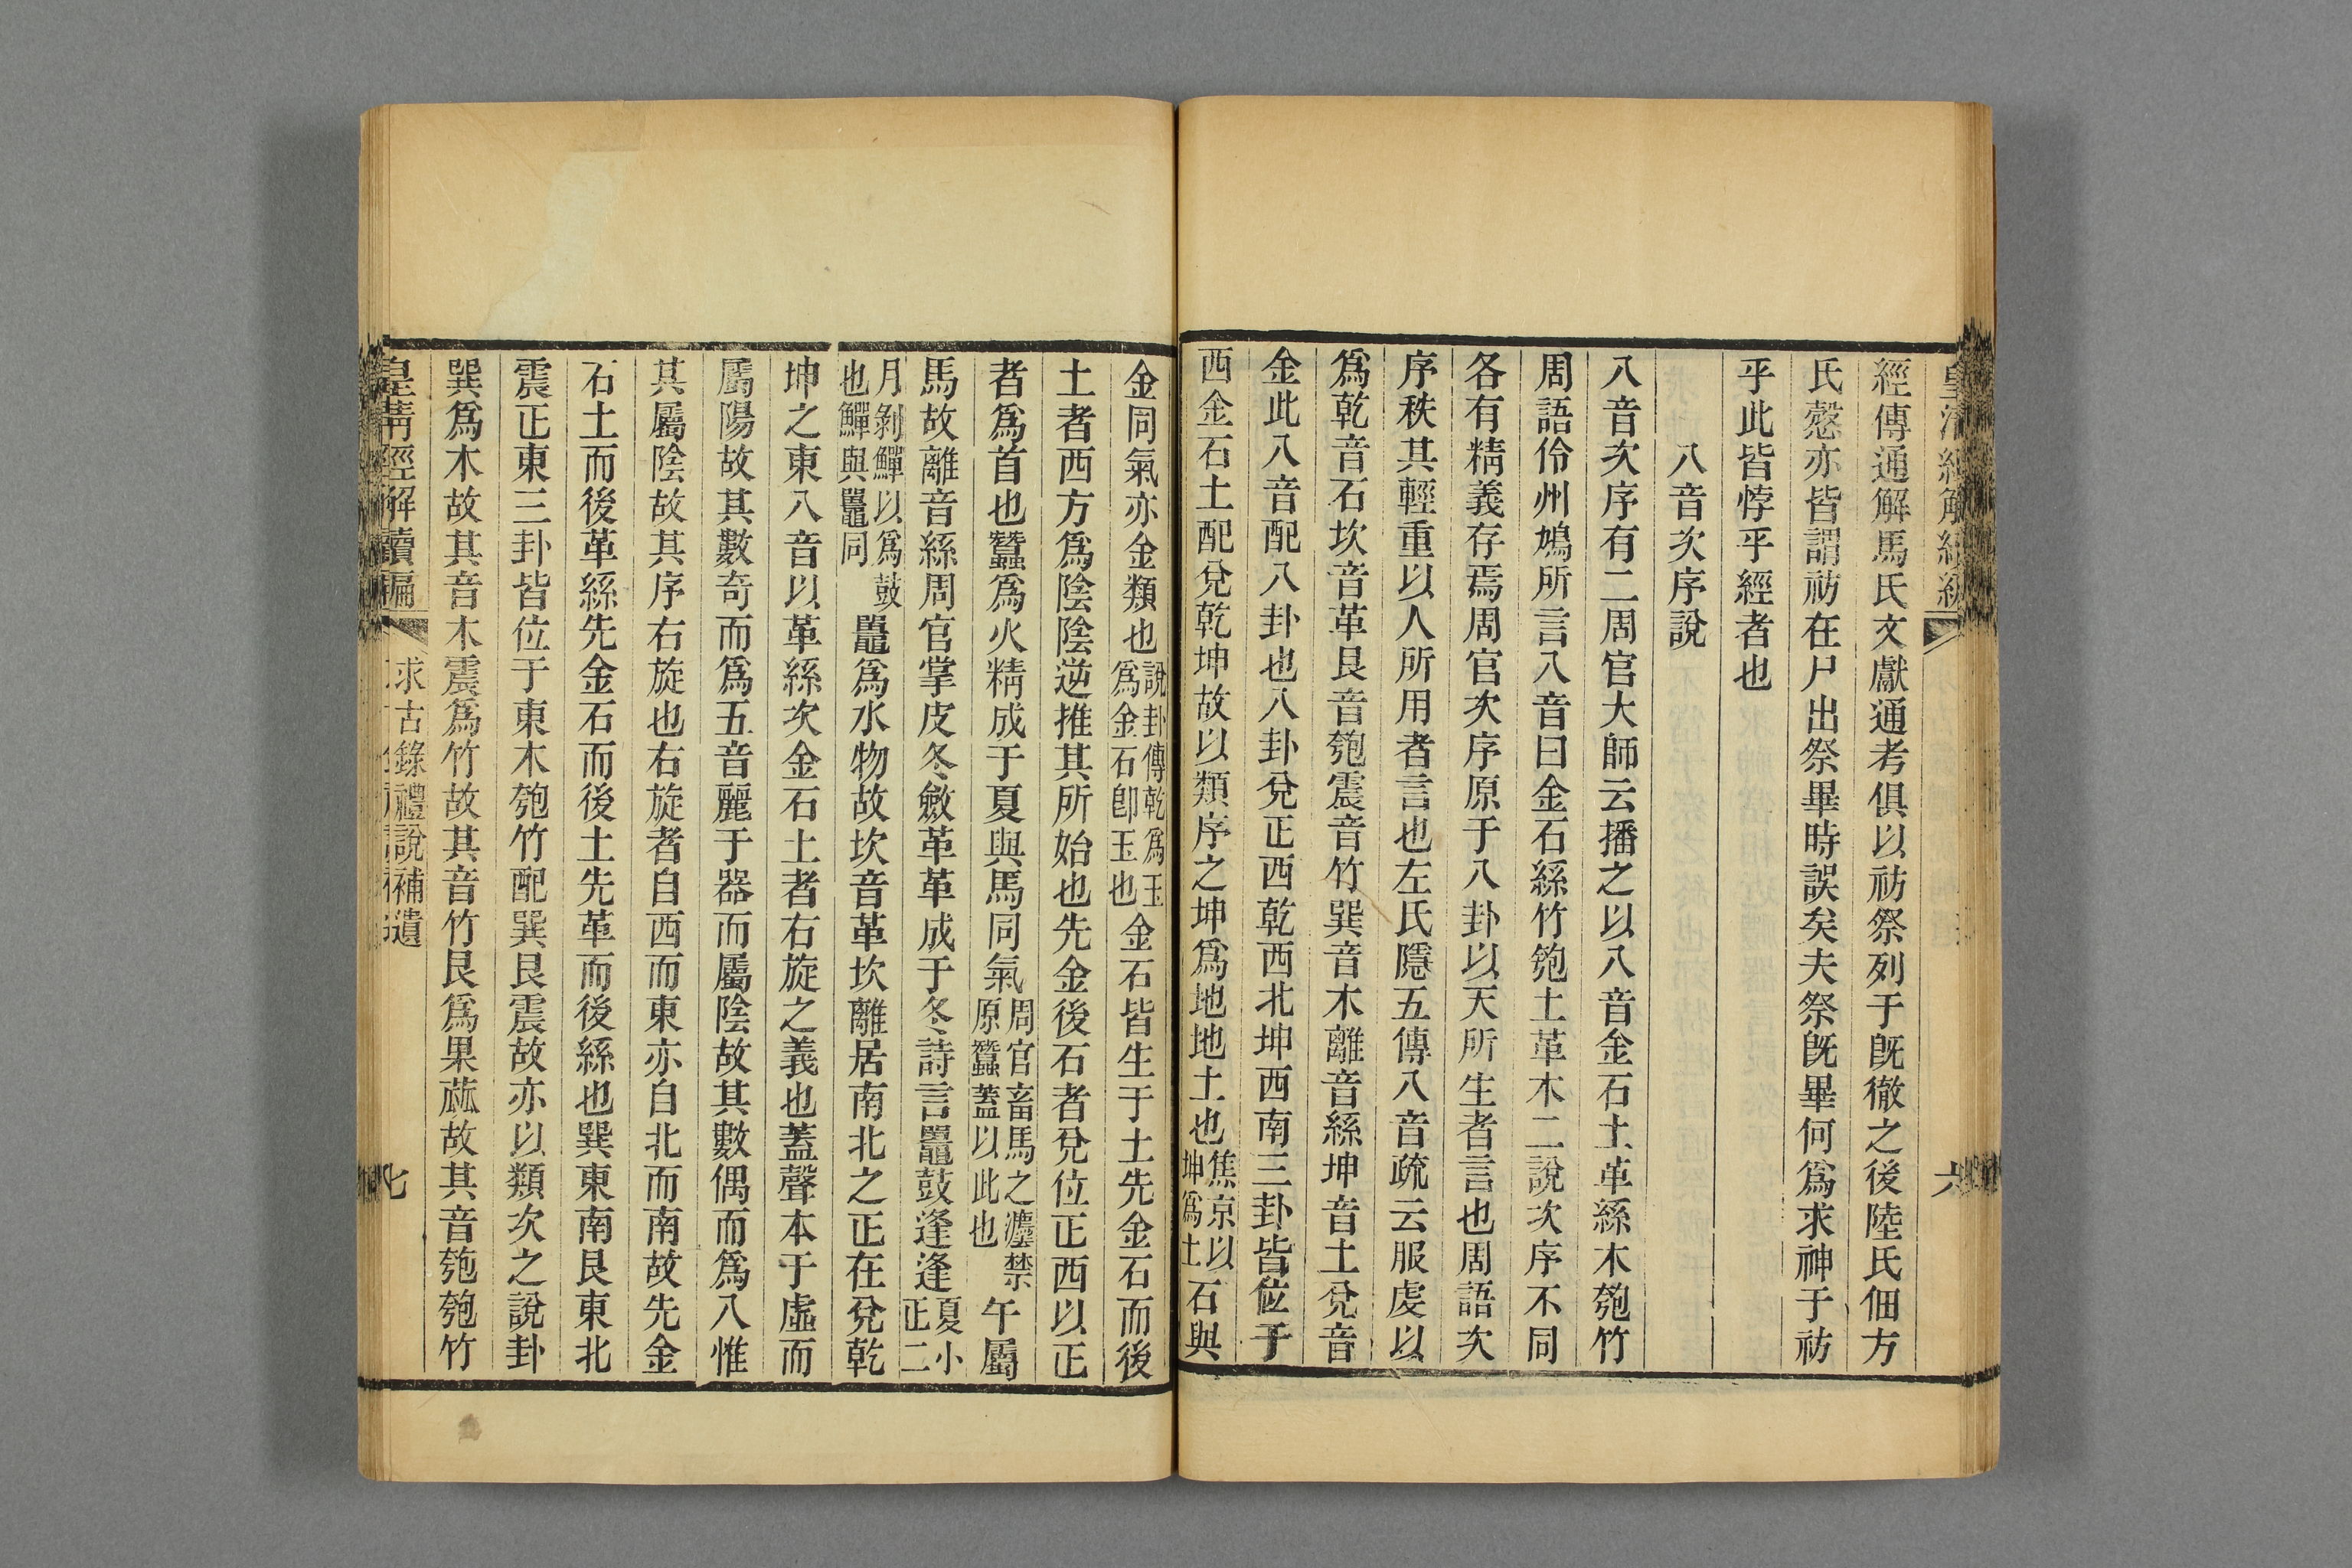 經傳通解馬氏文獻通考俱以祊祭列于旣徹之後陸氏佃方
氏慤亦皆謂祊在尸出祭畢時誤矣夫祭旣畢何爲求神于祊
乎此皆悖乎經者也
八音次序說
八音次序有二周官大師云播之以八音金石土革絲木匏竹
周語伶州鳩所言八音曰金石絲竹匏土革木二說次序不同
各有精義存焉周官次序原于八卦以天所生者言也周語次
序秩其輕重以人所用者言也左氏隱五傳八音疏云服虔以
爲乾音石坎音革艮音匏震音竹巽音木離音絲坤音土兌音
金此八音配八卦也八卦兌正西乾西北坤西南三卦皆位于
西金石土配兌乾坤故以類序之坤爲地地土也焦京以坤爲土石與
金同氣亦金類也說卦傳乾爲玉爲金石卽玉也金石皆生于土先金石而後
土者西方爲陰陰逆推其所始也先金後石者兌位正西以正
者爲首也蠶爲火精成于夏與馬同氣周官畜馬之灋禁原蠶蓋以此也午屬
馬故離音絲周官掌皮冬斂革革成于冬詩言鼉鼓逢逢夏小正二
月剝鱓以爲鼓也鱓與鼉同鼉爲水物故坎音革坎離居南北之正在兌乾
坤之東八音以革絲次金石土者右旋之義也蓋聲本于虛而
屬陽故其數奇而爲五音麗于器而屬陰故其數偶而爲八惟
其屬陰故其序右旋也右旋者自西而東亦自北而南故先金
石土而後革絲先金石而後土先革而後絲也巽東南艮東北
震正東三卦皆位于東木匏竹配巽艮震故亦以類次之說卦
巽爲木故其音木震爲竹故其音竹艮爲果蓏故其音匏匏竹
皇淸經解續編
求古錄禮說補遺
七